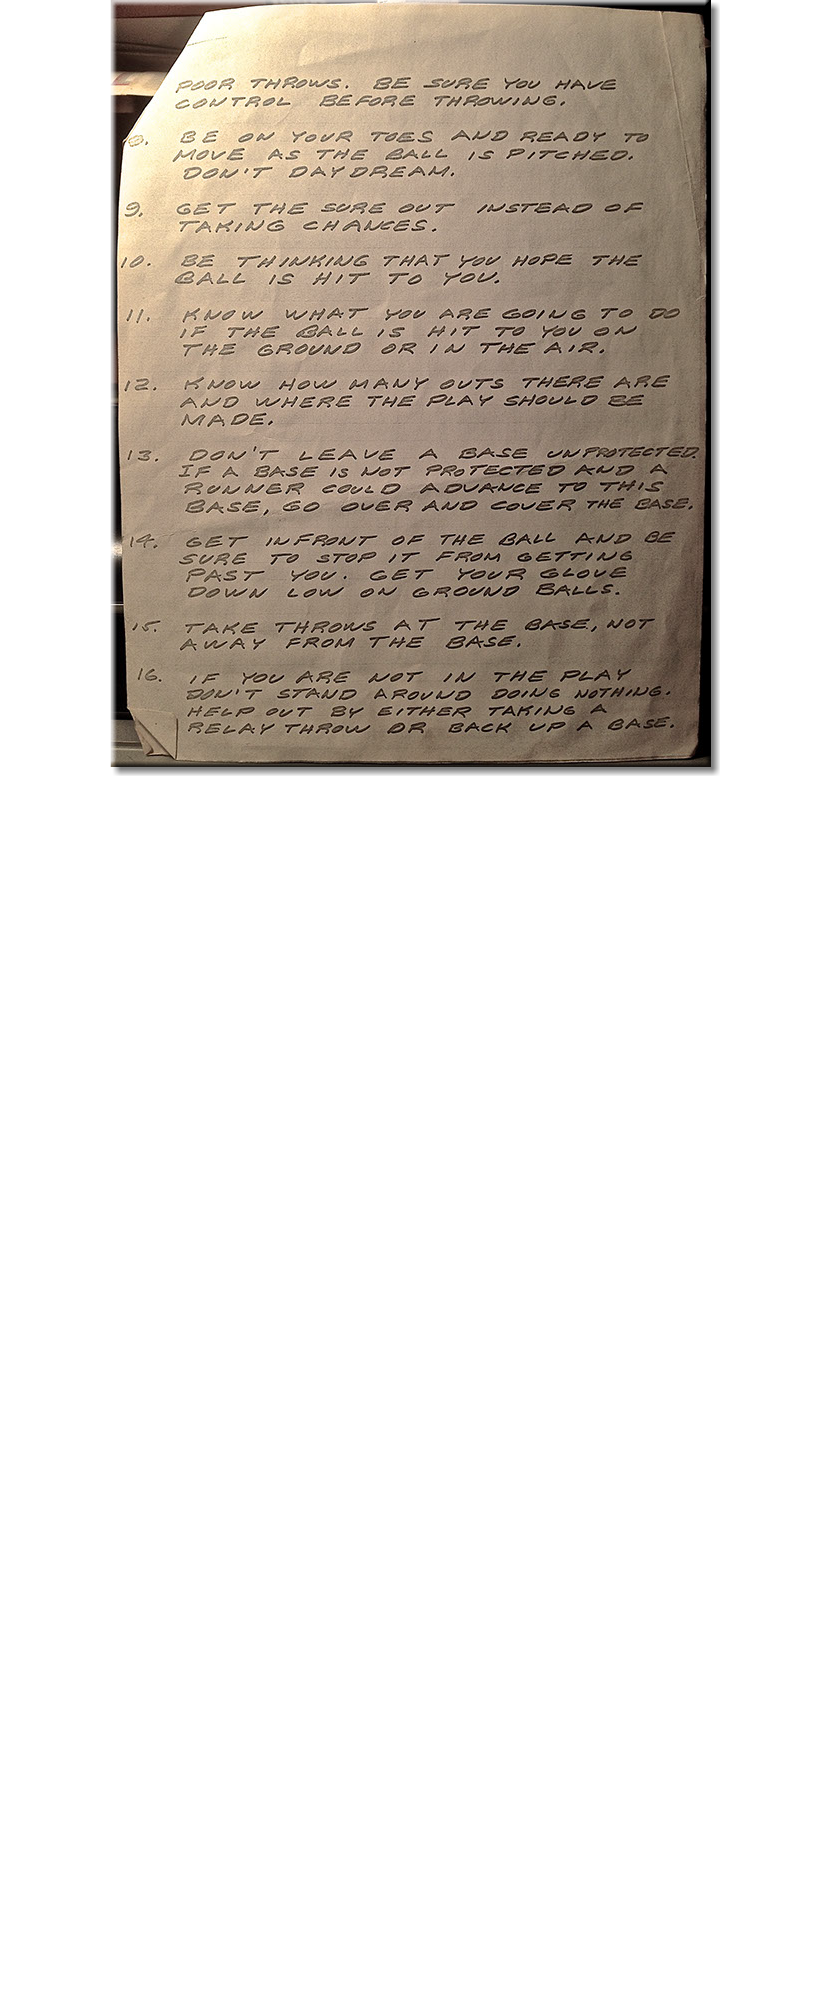 POOR THROWS. BE SURE YOU HAVE
CONTROL BEFORE THROWING.
8. BE ON YOUR TOES AND READY TO
MOVE AS THE BALL IS PITCHED.
DON'T DAYDREAM.
9. GET THE SURE OUT INSTEAD OF
TAKING CHANCES.
10. BE THINKING THAT YOU HOPE THE
BALL IS HIT TO YOU.
11. KNOW WHAT YOU ARE GOING TO DO
IF THE BALL IS HIT TO YOU ON
THE GROUND OR IN THE AIR.
12. KNOW HOW MANY OUTS THERE ARE
AND WHERE THE PLAY SHOULD BE
MADE.
13. DON'T LEAVE A BASE UNPROTECTED.
IF A BASE IS NOT PROTECTED AND A
RUNNER COULD ADVANCE TO THIS
BASE, GO OVER AND COVER THE BASE.
14. GET INFRONT OF THE BALL AND BE
SURE TO STOP IT FROM GETTING
PAST YOU. GET YOUR GLOVE
DOWN LOW ON GROUND BALLS.
15. TAKE THROWS AT THE BASE, NOT
AWAY FROM THE BASE.
16. IF YOU ARE NOT IN THE PLAY
DON'T STAND AROUND DOING NOTHING.
HELP OUT BY EITHER TAKING A
RELAY THROW OR BACK UP A BASE.